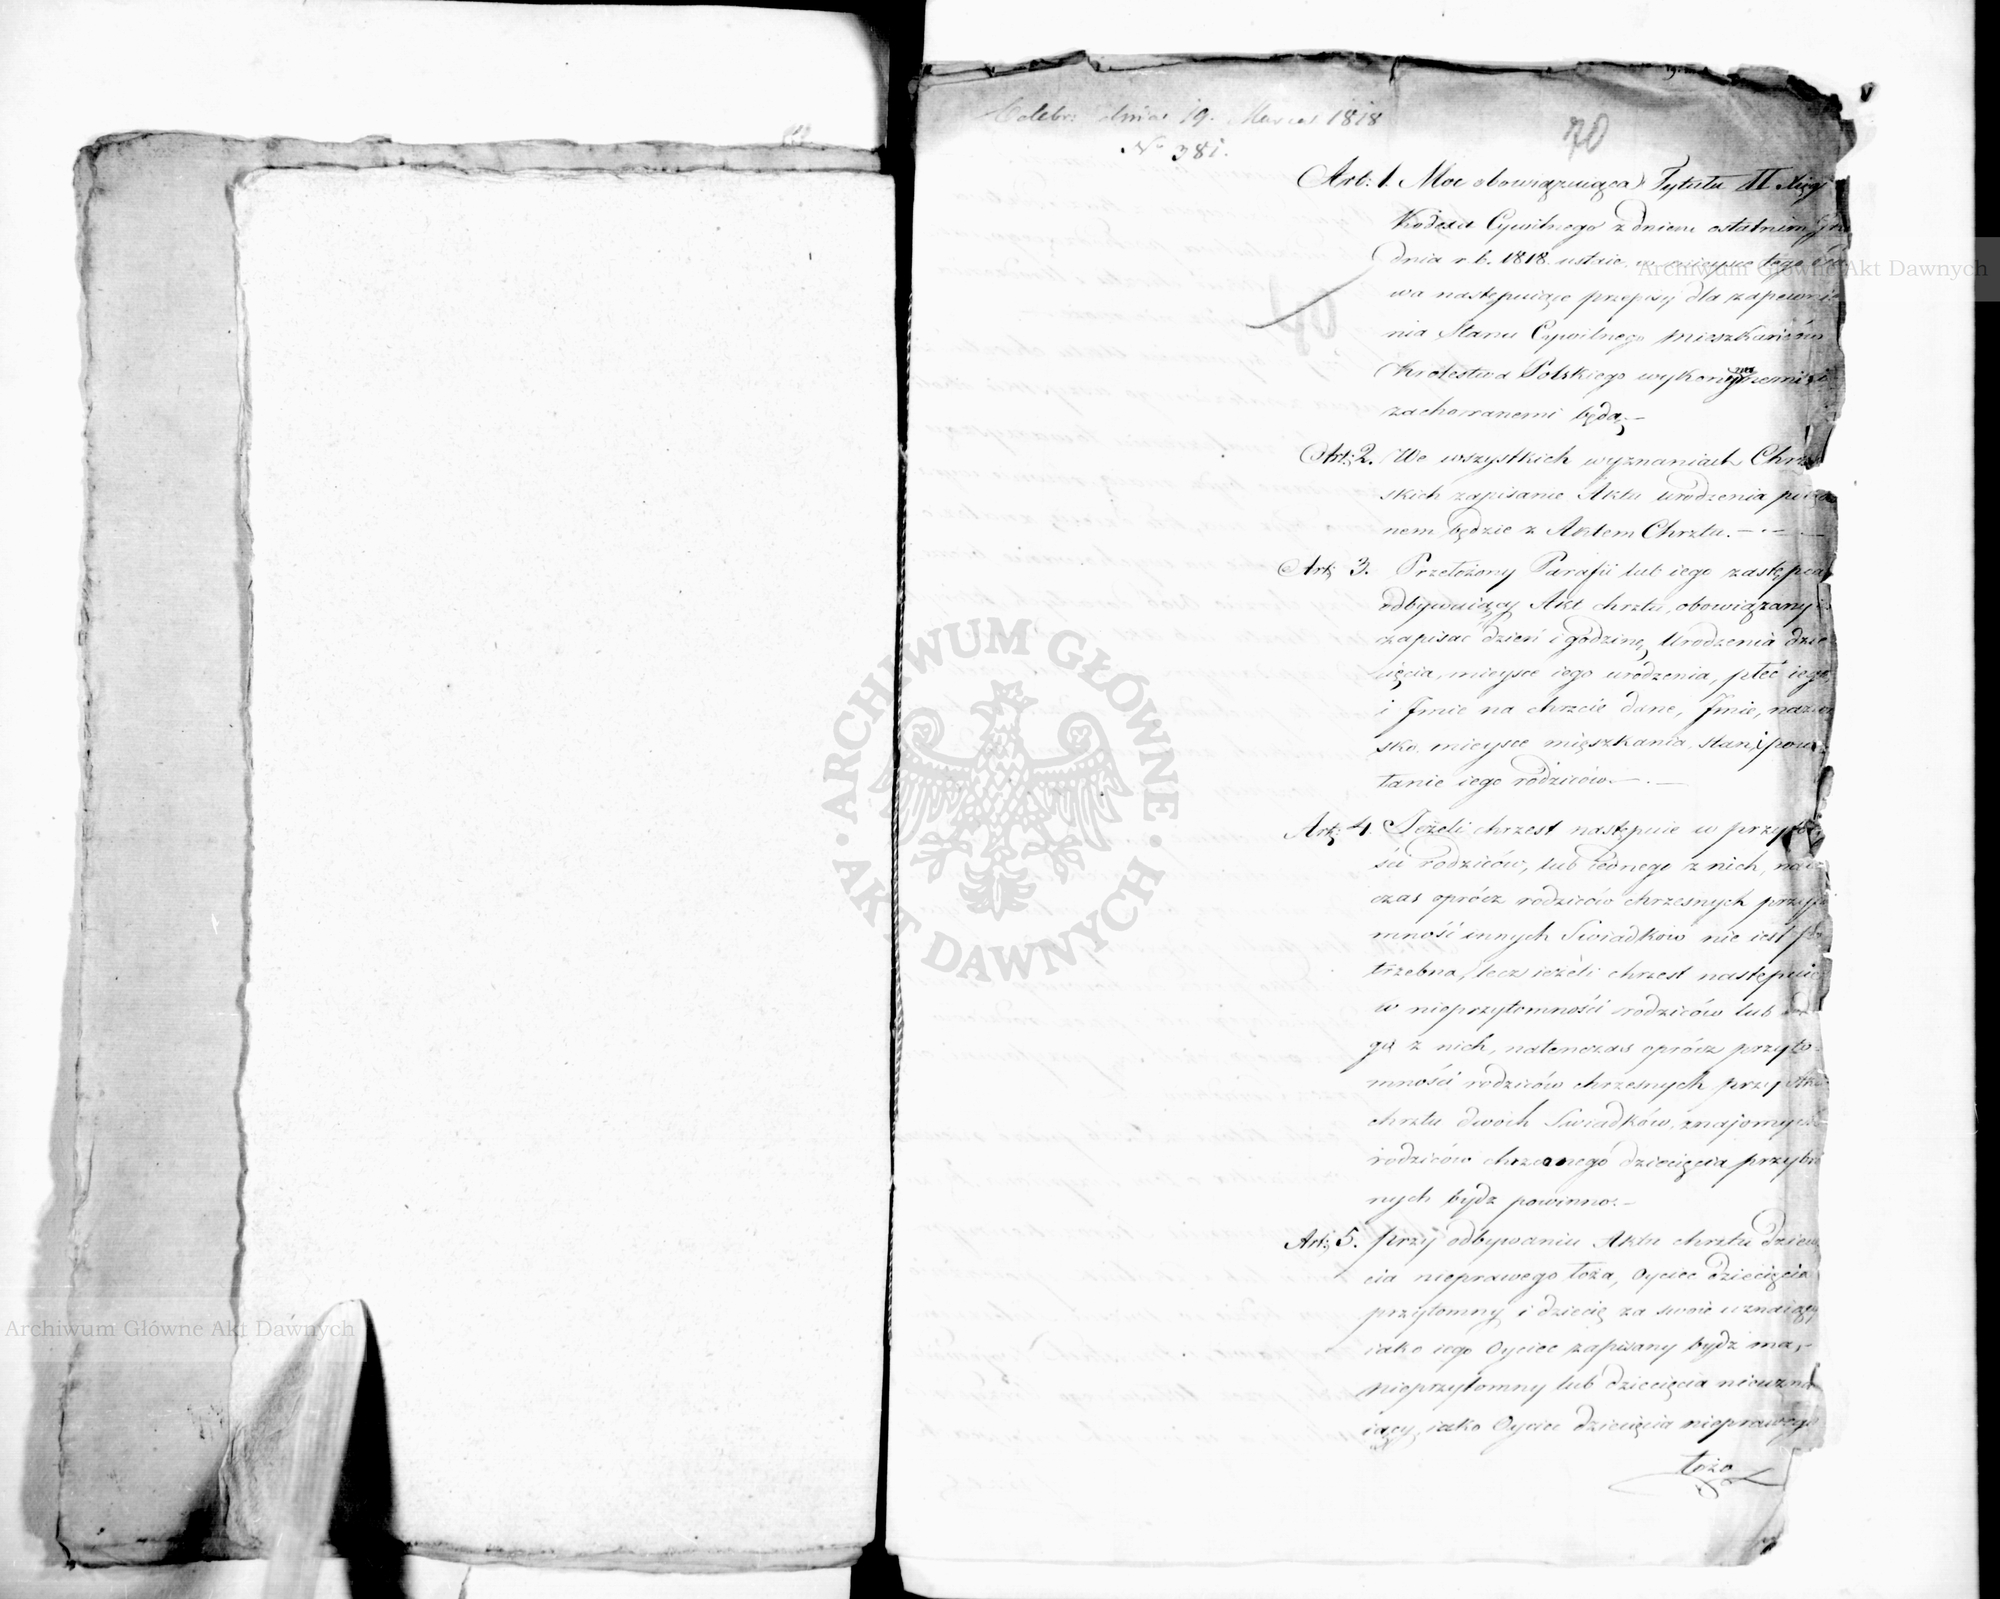 dnia 19. Marca 1818
No 381.
70
Art: 1. Moc obowiązuiąca Tytułu II Xięgi
Kodexu Cywilnego z dniem ostatnim
dnia r. b. 1818 ustaie, w mieysce tego
wa następuiące przepisy dla zapewnie
nia Stanu Cywilnego Mieszkańców
Królestwa Polskiego
zachowanemi będą.—
Art: 2. We wszystkich wyznaniach Chrze
skich zapisanie Aktu urodzenia
nem będzie z Aktem Chrztu. —
Art: 3. Przełożony Parafii lub iego zastępca
odbywaiący Akt chrztu, obowiązany
zapisać dzień i godzinę Urodzenia dzie
cięcia, mieysce iego urodzenia, płeć iego,
i Jmie na chrzcie dane, Jmie, nazwi
sko, mieysce mięszkania, stan, i powo
łanie iego rodziców. —
Art: 4. Jeżeli chrzest następuie w przyto
ści rodziców, lub iednego z nich, na
czas oprócz rodziców chrzesnych przyto
mność innych Swiadków nie iest po
trzebna, lecz ieżeli chrzest następuie
w nieprzytomności rodziców lub
go z nich, natenczas oprócz przyto-
mności rodziców chrzesnych przy Akcie
chrztu dwóch Swiadków, znajomych
rodziców chrzconego dziecięcia przybra
nych bydź powinno. —
Art: 5. przy odbywaniu Aktu chrztu dzieci
cia nieprawego łoża, Oyciec dziecięcia
przytomny i dziecię za swoie uznaiący
iako iego Oyciec zapisany bydź ma,
nieprzytomny lub dziecięcia nieuzna
iący, iako Oyciec dziecięcia nieprawego
łoża
ARCHIWUM GŁÓWNE
AKT DAWNYCH
Archiwum Główne Akt Dawnych
Archiwum Główne Akt Dawnych